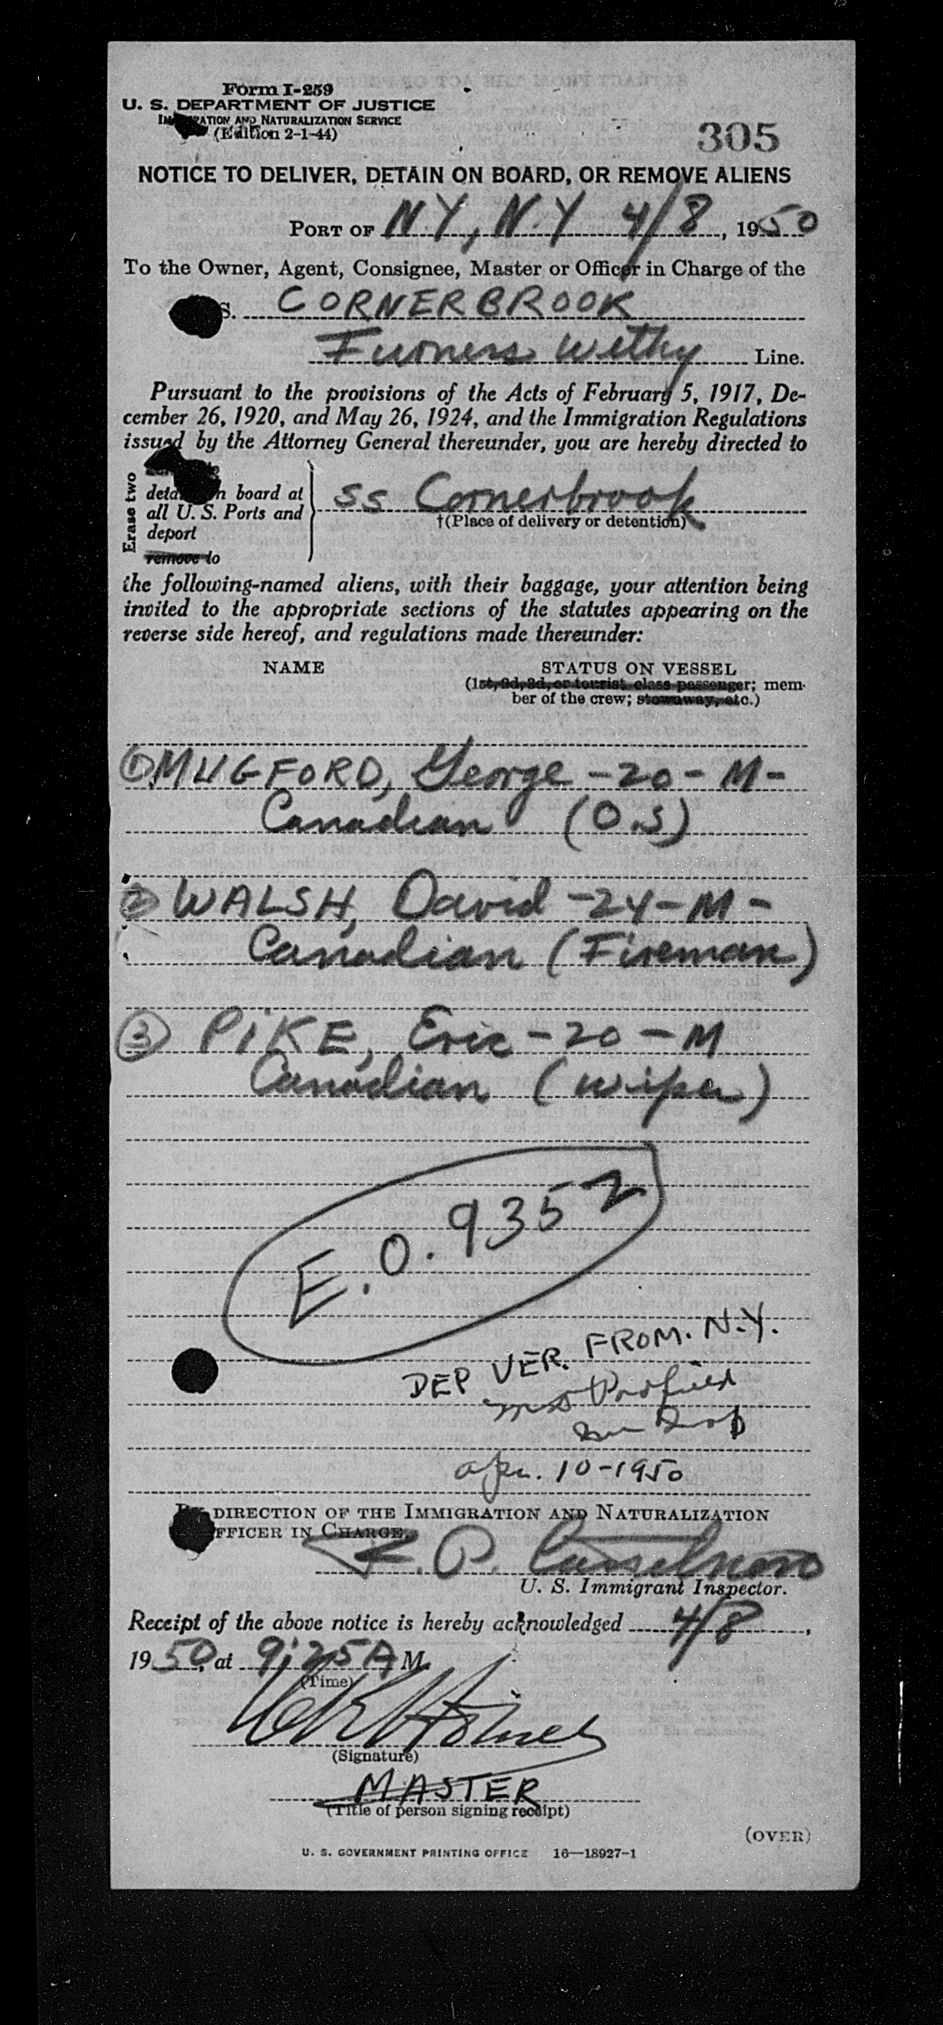 Form I-259
U. S. DEPARTMENT OF JUSTICE
IMMIGRATION AND NATURALIZATION SERVICE
(Edition 2-1-44)
305
NOTICE TO DELIVER, DETAIN ON BOARD, OR REMOVE ALIENS
PORT OF N.Y., N.Y 4/8, 1950
To the Owner, Agent, Consignee, Master or Officer in Charge of the
S. CORNERBROOK
Furness Withy Line.
Pursuant to the provisions of the Acts of February 5, 1917, De-
cember 26, 1920, and May 26, 1924, and the Immigration Regulations
issued by the Attorney General thereunder, you are hereby directed to
Erase two
detain on board at
all U. S. Ports and
deport
remove to
SS Cornerbrook
†(Place of delivery or detention)
the following-named aliens, with their baggage, your attention being
invited to the appropriate sections of the statutes appearing on the
reverse side hereof, and regulations made thereunder:
NAME STATUS ON VESSEL
(1st, 2d, 3d, or tourist class passenger; mem-
ber of the crew; stowaway, etc.)
① MUGFORD, George -20- M-
Canadian (O.S)
② WALSH, David -24- M-
Canadian (Fireman)
③ PIKE, Eric -20- M
Canadian (wiper)
E.O. 9352
DEP VER. FROM. N.Y.
Apr. 10-1950
BY DIRECTION OF THE IMMIGRATION AND NATURALIZATION
OFFICER IN CHARGE.
P.
U. S. Immigrant Inspector.
Receipt of the above notice is hereby acknowledged 4/8,
1950, at 9:25 A M.
(Time)
(Signature)
MASTER
(Title of person signing receipt)
(OVER)
U. S. GOVERNMENT PRINTING OFFICE 16—18927-1